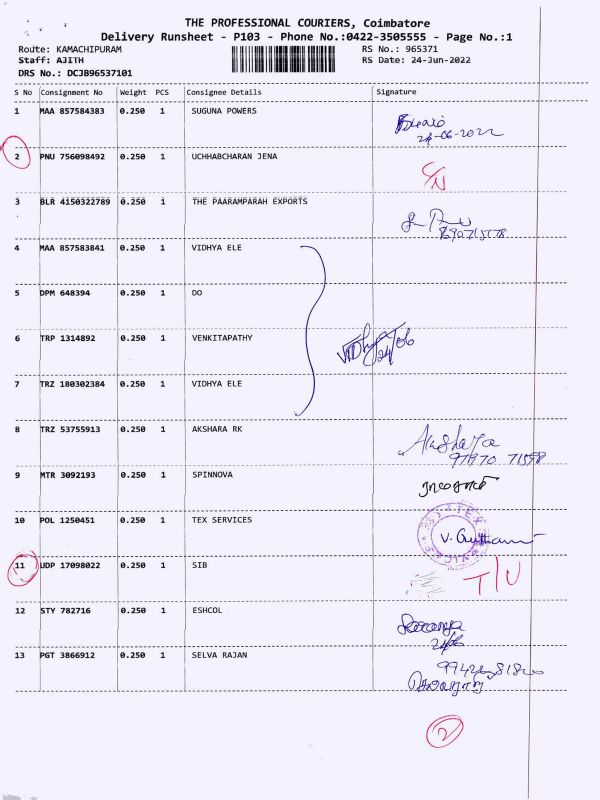 THE PROFESSIONAL COURIERS, Coimbatore
Delivery Runsheet - P103 - Phone No.:0422-3505555 - Page No.:1
Route: KAMACHIPURAM RS No.: 965371
Staff: AJITH RS Date: 24-Jun-2022
DRS No.: DCJB96537101
S No Consignment No Weight PCS Consignee Details Signature
1 MAA 857584383 0.250 1 SUGUNA POWERS
24-06-2022
2 PNU 756098492 0.250 1 UCHHABCHARAN JENA
C/N
3 BLR 4150322789 0.250 1 THE PAARAMPARAH EXPORTS
4 MAA 857583841 0.250 1 VIDHYA ELE
5 DPM 648394 0.250 1 DO
6 TRP 1314892 0.250 1 VENKITAPATHY
24/06
7 TRZ 180302384 0.250 1 VIDHYA ELE
8 TRZ 53755913 0.250 1 AKSHARA RK
Akshara
97970 71598
9 MTR 3092193 0.250 1 SPINNOVA
10 POL 1250451 0.250 1 TEX SERVICES
11 UDP 17098022 0.250 1 SIB
T/U
12 STY 782716 0.250 1 ESHCOL
13 PGT 3866912 0.250 1 SELVA RAJAN
2